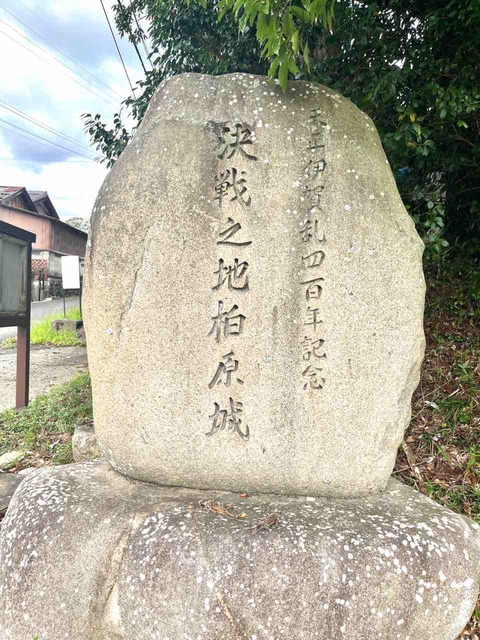 天正伊賀乱四百年記念
決戦之地柏原城